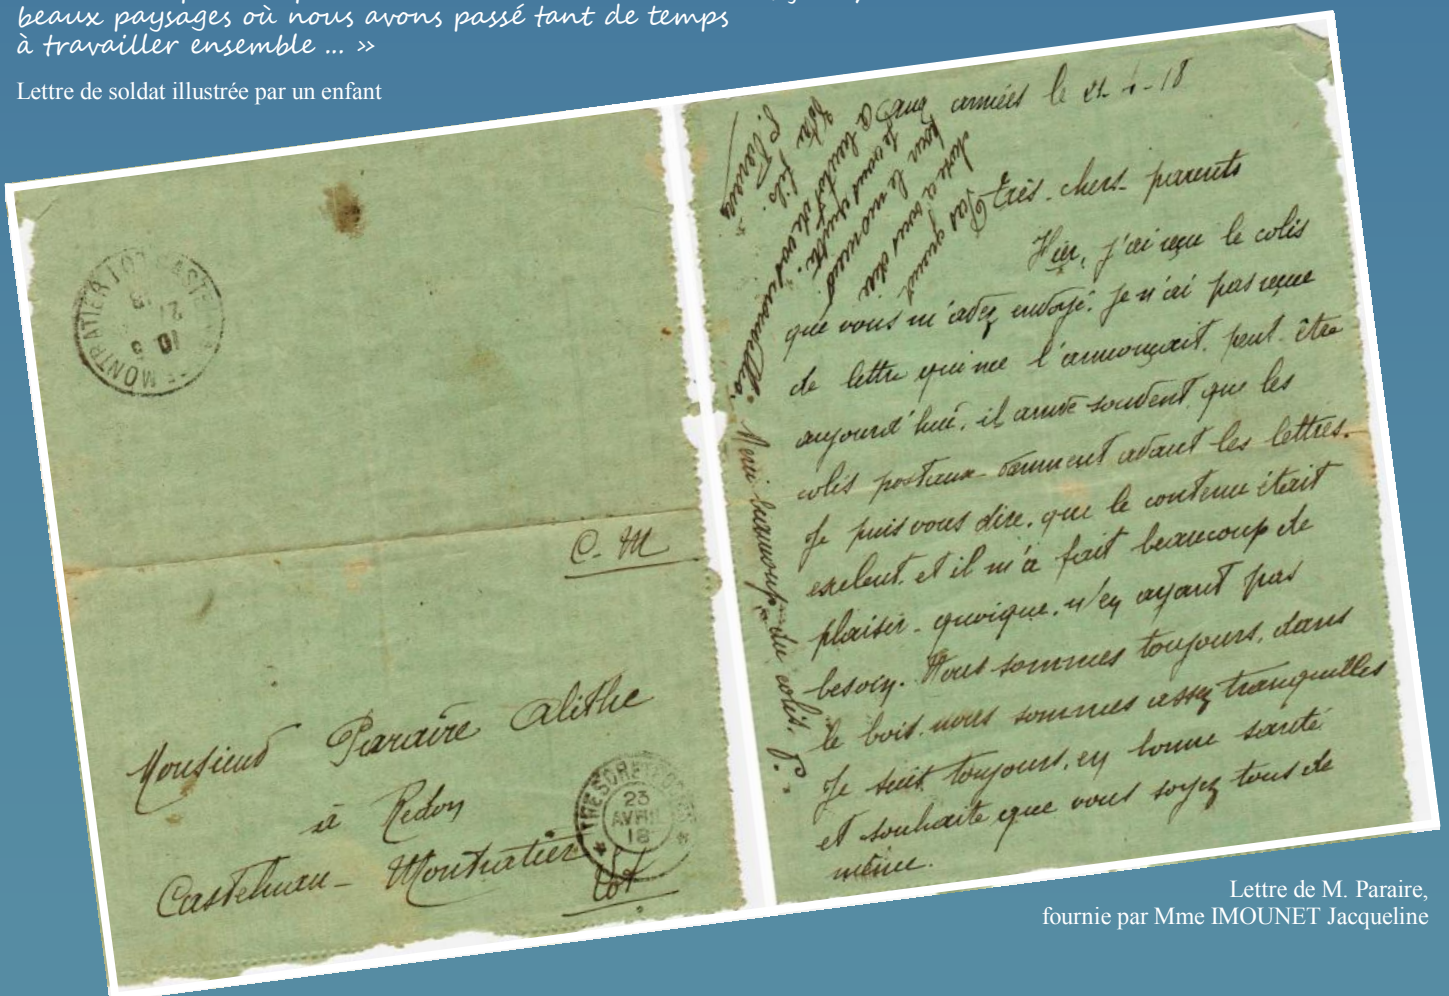 beaux paysages où nous avons passé tant de temps
à travailler ensemble ... »
Lettre de soldat illustrée par un enfant
MONTRATIER LOT
10 5
C. M
Monsieur Paraire Alithe
à Redon
Castelnau-Montratier
Lot
TRESOR ET POSTES
23
AVRIL
18
aux armées le 21-4-18
très chers parents
Hier, j'ai reçu le colis
que vous m'avez envoyé. Je n'ai pas reçue
de lettre qui me l'annonçait, peut-être
aujourd'hui, il arrive souvent que les
colis postaux viennent avant les lettres.
Je puis vous dire, que le contenu était
exelent, et il m'a fait beaucoup de
plaisir - quoique n'en ayant pas
besoin. Nous sommes toujours, dans
le bois. nous sommes assez tranquilles
Je suis toujours, en bonne santé
et souhaite que vous soyez tous de
même.
Pas grand
chose a vous dire
pour le moment
Je vous quitte.
a bientôt de vos nouvelles.
Votre fils.
P.
Merci beaucoup du colis. P.
Lettre de M. Paraire,
fournie par Mme IMOUNET Jacqueline